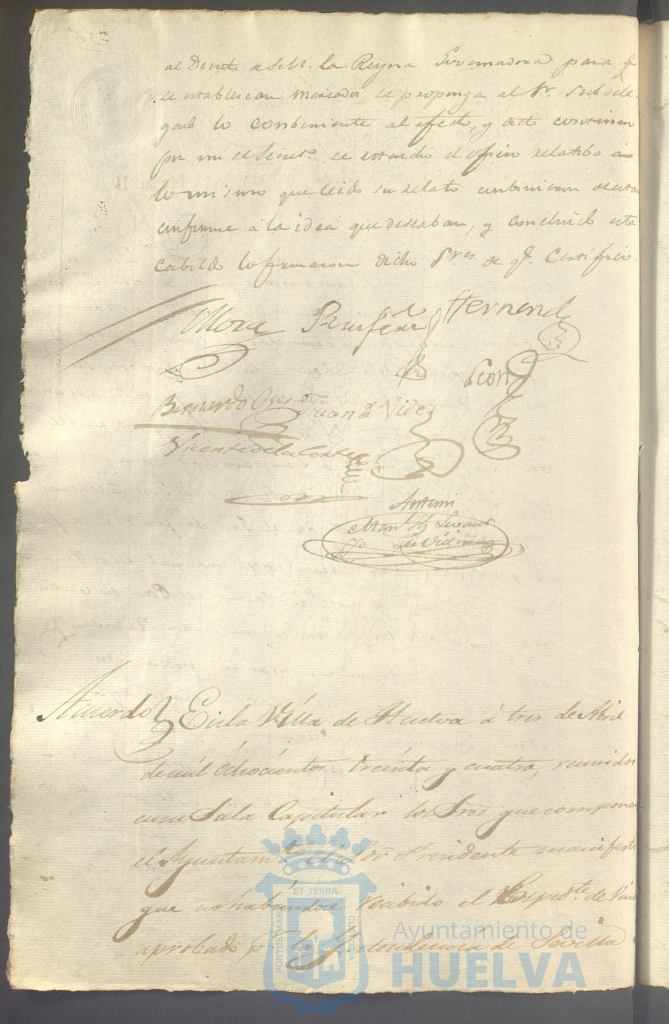 al Decreto de S.M. la Reyna Governadora para q.e
se establescan mercados, se proponga al Sr. Subdele-
gado lo combeniente al efecto, y
por mi el Secret.o se estendio el oficio relatibo a
lo mismo que leido su relato combinieron
conforme a la idea que deseaban, y concluido este
Cabildo lo firmaron dichos S.res de q.e Certifico.
Mora Hernand
León
Bernardo Juan D. Videz
Vicente de la Corte
Antemi
Acuerdo En la Villa de Huelva á tres de Abril
de mil ochocientos treinta y cuatro, reunidos
en su Sala Capitular los Sres que componen
el Ayuntam.to el Señor Presidente manifesto
que habiendose recibido el Exped.te de
aprobado p.r la Yntendencia de Sevilla
PORTUS MARIS ET TERRAE CUSTODIA
Ayuntamiento de
HUELVA